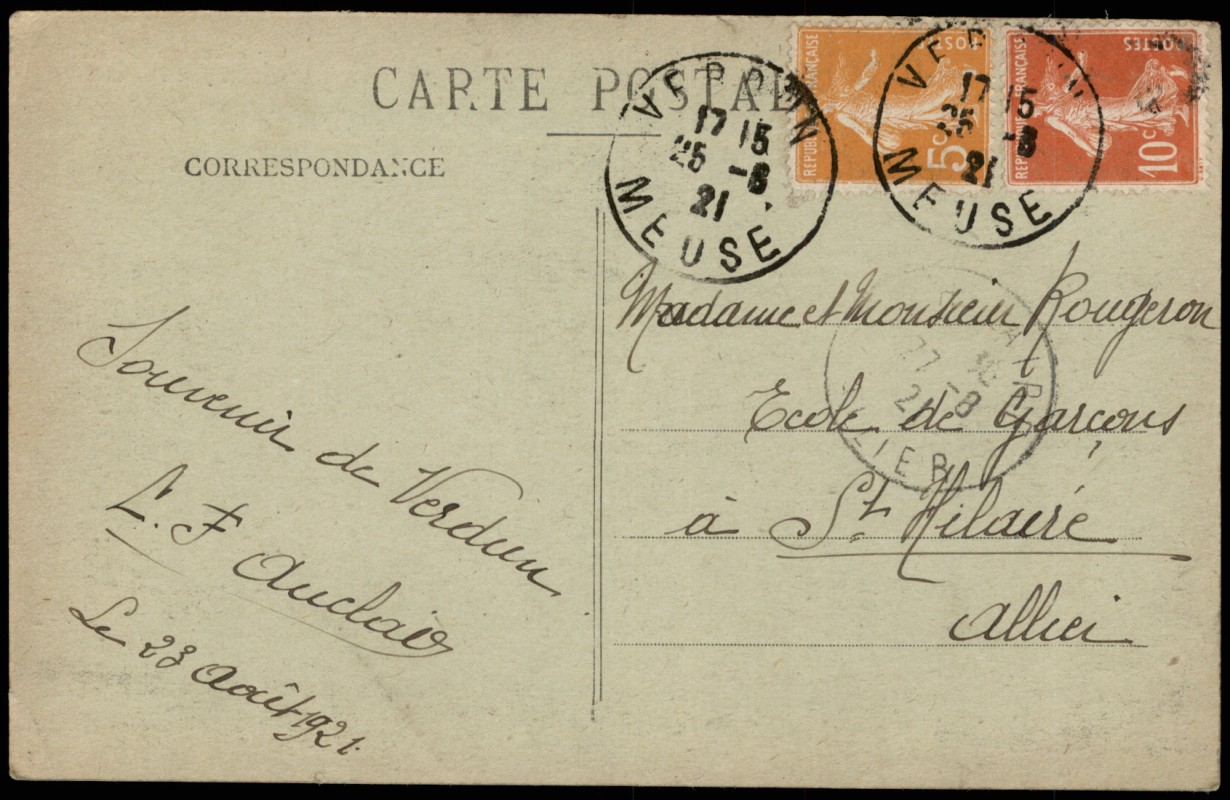 CARTE POSTALE
CORRESPONDANCE
VERDUN
17 15
25 -8
21
MEUSE
REPUBLIQUE FRANÇAISE
POSTES
5c
VERDUN
17 15
25 -8
21
MEUSE
REPUBLIQUE FRANÇAISE
POSTES
10c
Souvenir de Verdun
L. F. Auclair
Le 23 Août 1921.
Madame et Monsieur Rougeron
Ecole de Garçons
à St. Hilaire
Allier
27 -8